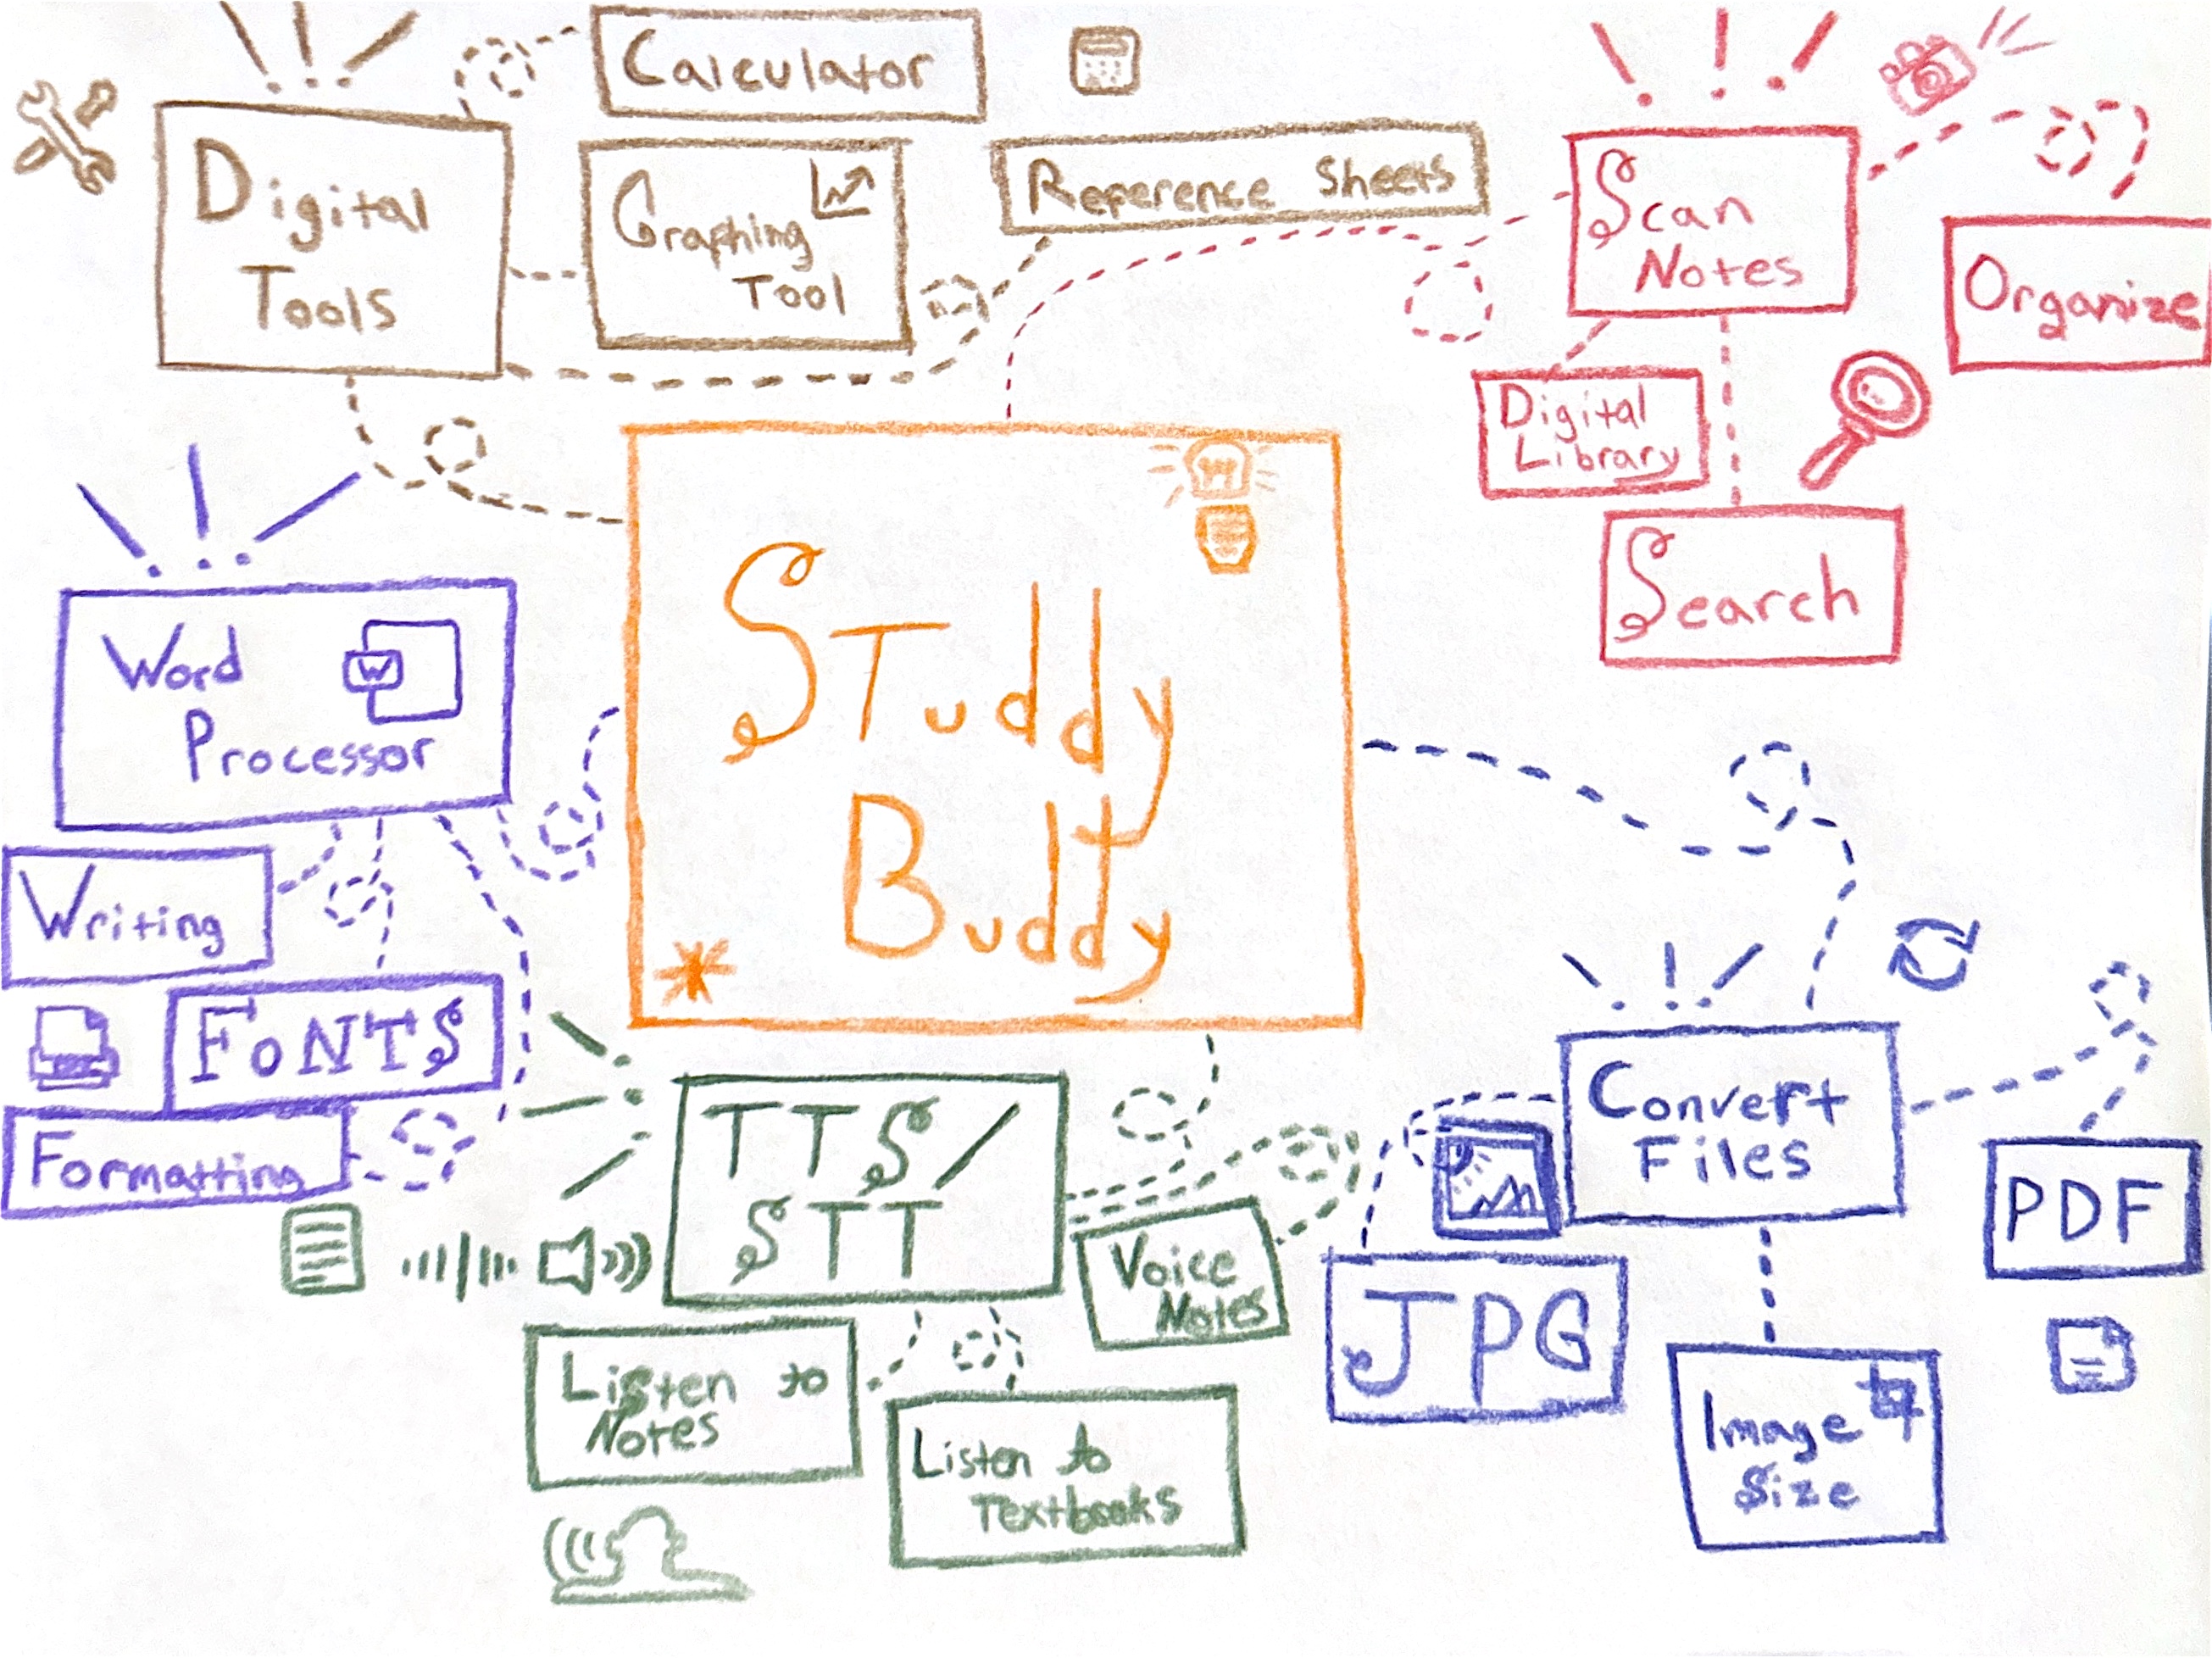 Calculator
Digital
Tools
Graphing
Tool
Reference Sheets
Scan
Notes
Organize
Digital
Library
Search
Word
W
Processor
Writing
FONTS
Formatting
STuddy
Buddy
TTS/
STT
Voice
Notes
Listen to
Notes
Listen to
Textbooks
Convert
Files
JPG
PDF
Image
Size